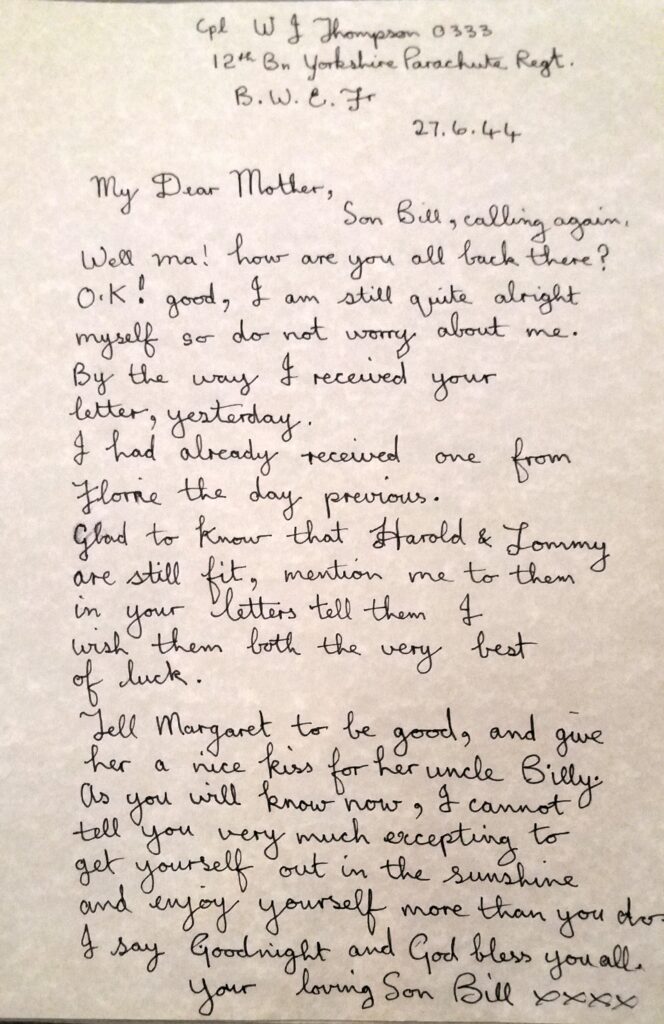 Cpl W J Thompson 0333
12th Bn Yorkshire Parachute Regt.
B. W. E. Fr
27.6.44
My Dear Mother,
Son Bill, calling again.
Well ma! how are you all back there?
O.K! good, I am still quite alright
myself so do not worry about me.
By the way I received your
letter, yesterday.
I had already received one from
Florrie the day previous.
Glad to know that Harold & Tommy
are still fit, mention me to them
in your letters tell them I
wish them both the very best
of luck.
Tell Margaret to be good, and give
her a nice kiss for her uncle Billy.
As you will know now, I cannot
tell you very much excepting to
get yourself out in the sunshine
and enjoy yourself more than you do.
I say Goodnight and God bless you all.
Your loving Son Bill xxxx